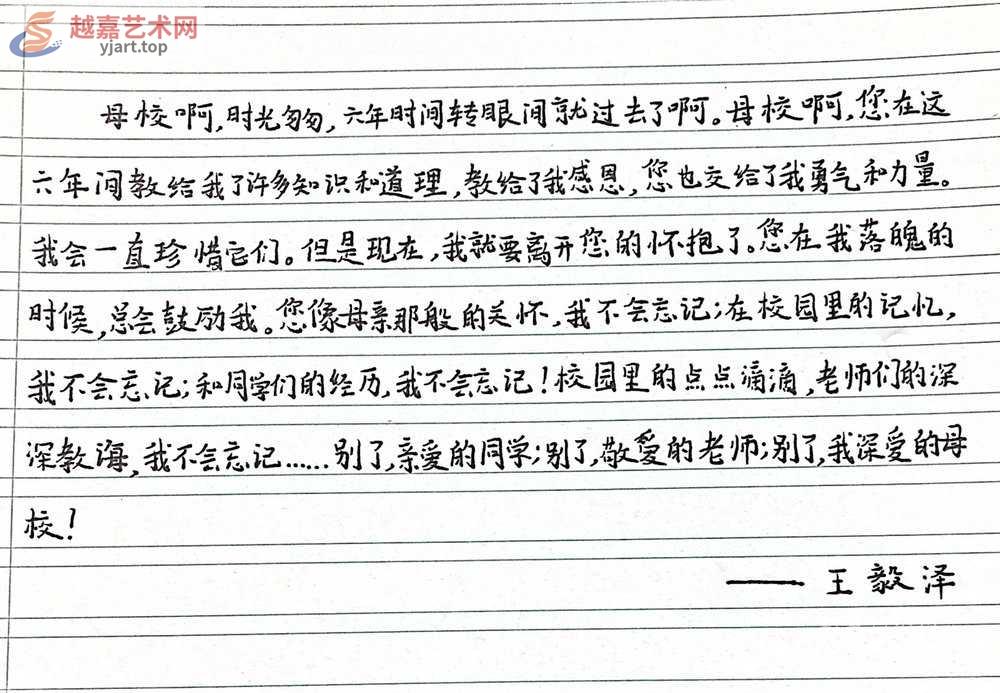 越嘉艺术网
yjart.top
母校啊，时光匆匆，六年时间转眼间就过去了啊。母校啊，您在这
六年间教给我了许多知识和道理，教给了我感恩，您也交给了我勇气和力量。
我会一直珍惜它们。但是现在，我就要离开您的怀抱了。您在我落魄的
时候，总会鼓励我。您像母亲那般的关怀，我不会忘记；在校园里的记忆，
我不会忘记；和同学们的经历，我不会忘记！校园里的点点滴滴，老师们的深
深教海，我不会忘记……别了，亲爱的同学；别了，敬爱的老师；别了，我深爱的母
校！
——王毅泽